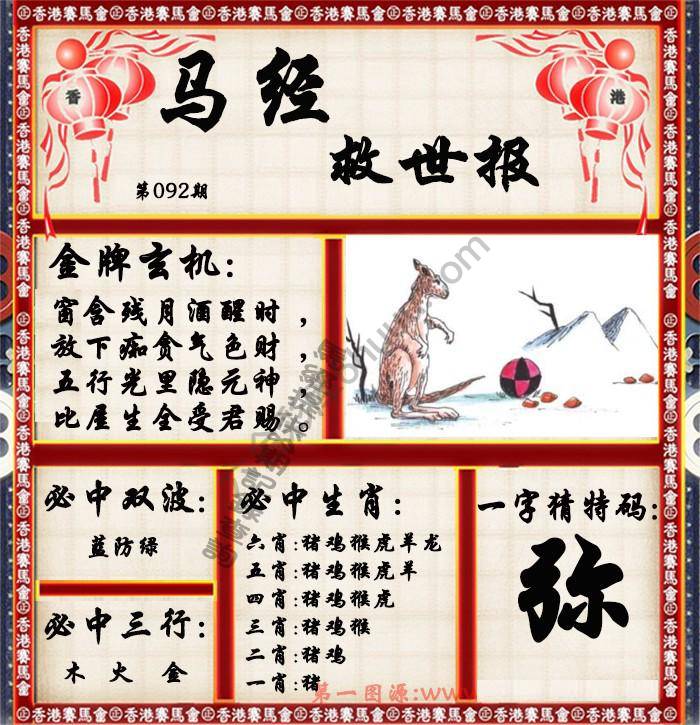 香港賽馬會
香
港
马经
救世报
第092期
金牌玄机:
窗含残月酒醒时，
放下痴贪气色财，
五行光里隐元神，
比屋生全受君赐。
必中双波:
蓝防绿
必中三行:
木火金
必中生肖:
六肖:猪鸡猴虎羊龙
五肖:猪鸡猴虎羊
四肖:猪鸡猴虎
三肖:猪鸡猴
二肖:猪鸡
一肖:猪
一字猜特码:
弥
第一图源:www